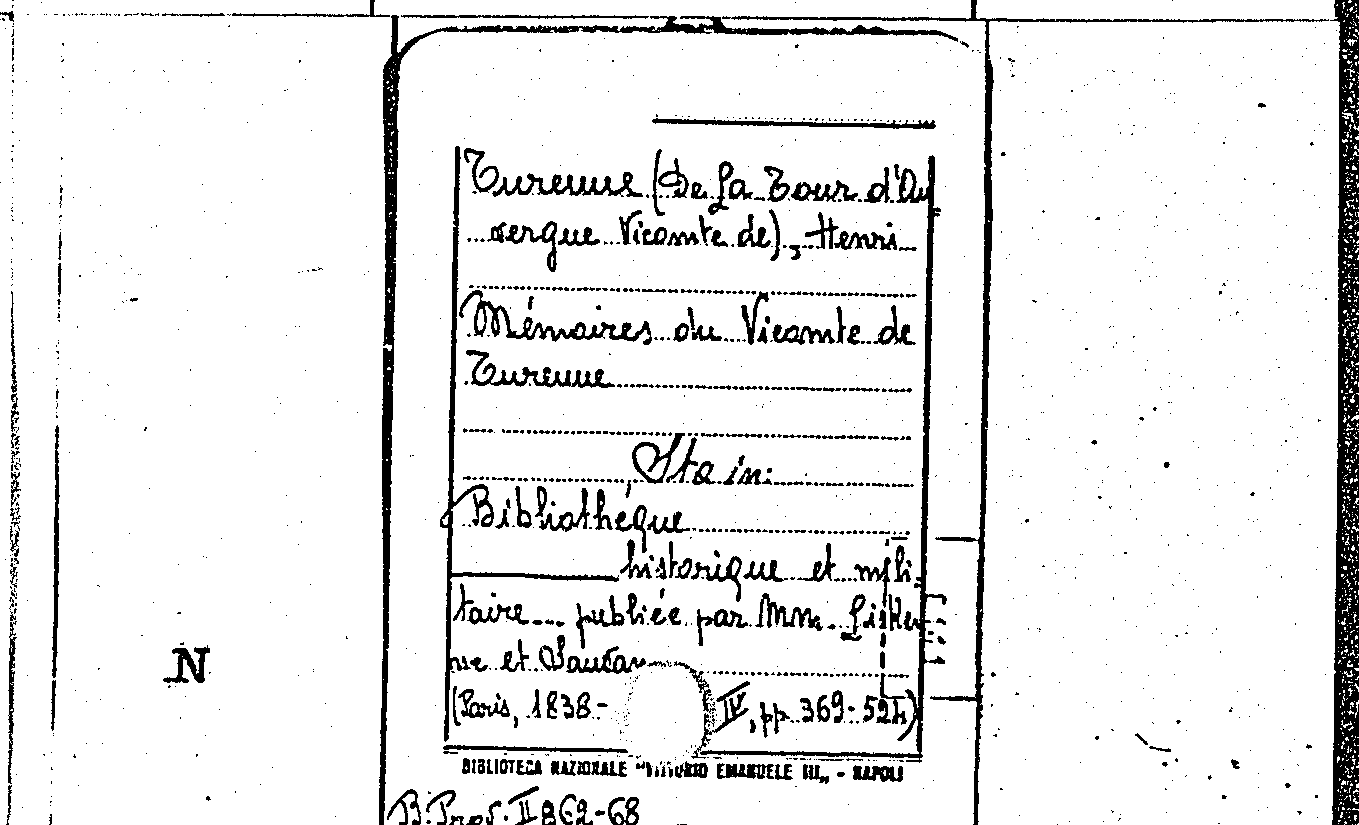 Turenne (De La Tour d'Au
vergue Vicomte de), Henri
Mémoires du Vicomte de
Turenne
Sta in:
Bibliothéque
historique et mili
taire... publiée par Mm. Liske
ne et Sauvan
(Paris, 1838- IV, pp. 369-524)
BIBLIOTECA NAZIONALE "VITTORIO EMANUELE III„ - NAPOLI
N
B. Prov. II 862-68